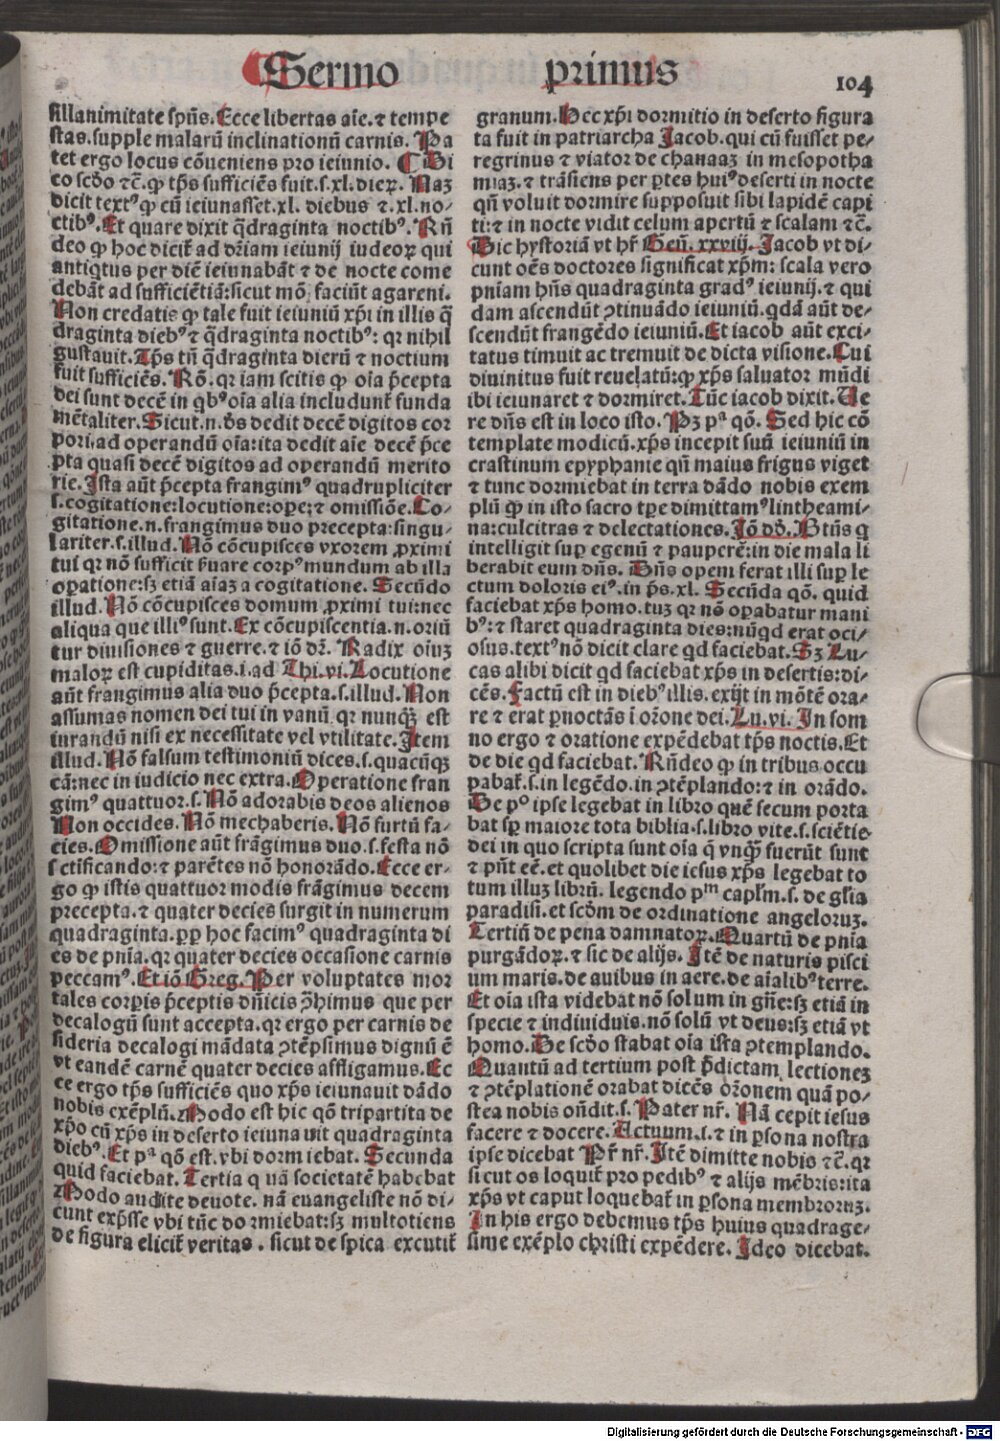 Sermo primus 104
sillanimitate spūs. Ecce libertas aīe. ⁊ tempe
stas. supple malarū inclinationū carnis. Pa
tet ergo locus cōueniens pro ieiunio. ¶ Di
co scđo ⁊c̄. ꝙ tp̄s sufficiēs fuit. s. xl. dieꝝ. Naꝫ
dicit textꝰ ꝙ cū ieiunasset. xl. diebus ⁊. xl. no-
ctibꝰ. Et quare dixit q̄draginta noctibꝰ. Rn̄
deo ꝙ hoc dicit̄ ad dr̄iam ieiunij iudeoꝝ qui
antiqtus per diē ieiunabāt ⁊ de nocte come
debāt ad sufficiētiā: sicut mō faciūt agareni.
Non credatis ꝙ tale fuit ieiuniū xp̄i in illis q̄
draginta diebꝰ ⁊ q̄draginta noctibꝰ: qr nihil
gustauit. Tp̄s tn̄ q̄draginta dierū ⁊ noctium
fuit sufficiēs. Rō. qr iam scitis ꝙ oīa p̄cepta
dei sunt decē in qbꝰ oīa alia includunt̄ funda
mētaliter. Sicut. n. d̄s dedit decē digitos cor
pori. ad operandū oīa: ita dedit aīe decē p̄ce
pta quasi decē digitos ad operandū merito
rie. Ista aūt p̄cepta frangimꝰ quadrupliciter
s. cogitatione: locutione: oꝑe: ⁊ omissiōe. Co-
gitatione. n. frangimus duo precepta: singu-
lariter. s. illud. Nō cōcupisces vxorem ꝓximi
tui qr nō sufficit ẜuare corpꝰ mundum ab illa
oꝑatione: sꝫ etiā aīaꝫ a cogitatione. Secūdo
illud. Nō cōcupisces domum ꝓximi tui: nec
aliqua que illiꝰ sunt. Ex cōcupiscentia. n. oriū
tur diuisiones ⁊ guerre. ⁊ iō dr̄. Radix oīuꝫ
maloꝝ est cupiditas. i. ad Thi. vi. Locutione
aūt frangimus alia duo p̄cepta. s. illud. Non
assumas nomen dei tui in vanū. qr nunqꝫ est
iurandū nisi ex necessitate vel vtilitate. Item
illud. Nō falsum testimoniū dices. s. quacūqꝫ
cā: nec in iudicio nec extra. Operatione fran
gimꝰ quattuor. s. Nō adorabis deos alienos
Non occides. Nō mechaberis. Nō furtū fa-
cies. Omissione aūt frāgimus duo. s. festa nō
sctificando: ⁊ parētes nō honorādo. Ecce er-
go ꝙ istis quattuor modis frāgimus decem
precepta. ⁊ quater decies surgit in numerum
quadraginta. ꝓp hoc facimꝰ quadraginta di
es de pnīa. qr quater decies occasione carnis
peccamꝰ. Et iō Greg. Per voluptates mor
tales corꝑis p̄ceptis dn̄icis ꝯ̄himus que per
decalogū sunt accepta. qr ergo per carnis de
sideria decalogi mādata ꝯtēpsimus dignū ē
vt eandē carnē quater decies affligamus. Ec
ce ergo tp̄s sufficiēs quo xp̄s ieiunauit dādo
nobis exēplū. Modo est hic qō tripartita de
xp̄o cū xp̄s in deserto ieiunauit quadraginta
diebꝰ. Et pᵃ qō est. vbi dormiebat. Secunda
quid faciebat. Tertia q uā societatē habebat
Modo audite deuote. nā euangeliste nō di-
cunt exp̄sse vbi tūc dormiebat: sꝫ multotiens
de figura elicit̄ veritas. sicut de spica excutit̄
granum. Hec xp̄i dormitio in deserto figura
ta fuit in patriarcha Jacob. qui cū fuisset pe-
regrinus ⁊ viator de chanaaꝫ in mesopotha
miaꝫ. ⁊ trāsiens per ꝑtes huiꝰ deserti in nocte
qn̄ voluit dormire supposuit sibi lapidē capi
ti: ⁊ in nocte vidit celum apertū ⁊ scalam ⁊c̄.
Hic hystoriā vt hr̄ Gen̄. xxviij. Jacob vt di-
cunt oēs doctores significat xp̄m: scala vero
pnīam hn̄s quadraginta gradꝰ ieiunij. ⁊ qui
dam ascendūt ꝯtinuādo ieiuniū. qdā aūt de-
scendūt frangēdo ieiuniū. Et iacob aūt exci-
tatus timuit ac tremuit de dicta visione. Cui
diuinitus fuit reuelatū: ꝙ xp̄s saluator mūdi
ibi ieiunaret ⁊ dormiret. Tūc iacob dixit. Ve
re dn̄s est in loco isto. Pꝫ pᵃ qō. Sed hic cō
template modicū. xp̄s incepit suū ieiuniū in
crastinum epyphanie qn̄ maius frigus viget
⁊ tunc dormiebat in terra dādo nobis exem
plū ꝙ in isto sacro tꝑe dimittamꝰ lintheami-
na: culcitras ⁊ delectationes. Iō dd̄. Btūs q
intelligit suꝑ egenū ⁊ pauperē: in die mala li
berabit eum dn̄s. Dn̄s opem ferat illi suꝑ le
ctum doloris eiꝰ. in p̄s. xl. Secūda qō. quid
faciebat xp̄s homo. tuꝫ qr nō oꝑabatur mani
bꝰ: ⁊ staret quadraginta dies: nūqd erat oci-
osus. textꝰ nō dicit clare qd faciebat. Sꝫ Lu-
cas alibi dicit qd faciebat xp̄s in desertis: di-
cēs. Factū est in diebꝰ illis. exijt in mōtē ora-
re ⁊ erat ꝑnoctās ī orōne dei. Lu. vi. In som
no ergo ⁊ oratione expēdebat tp̄s noctis. Et
de die qd faciebat. Rn̄deo ꝙ in tribus occu
pabat̄. s. in legēdo. in ꝯtēplando: ⁊ in orādo.
De pᵒ ipse legebat in libro quē secum porta
bat sꝑ maiore tota biblia. s. libro vite. s. sciētie
dei in quo scripta sunt oīa q̄ vnqꝫ fuerūt sunt
⁊ pn̄t eē. et quolibet die iesus xp̄s legebat to
tum illuꝫ librū. legendo pᵐ capl'm. s. de gl'ia
paradisi. et scđm de ordinatione angeloruꝫ.
Tertiū de pena damnatoꝝ. Quartū de pnīa
purgādoꝝ. ⁊ sic de alijs. Itē de naturis pisci
um maris. de auibus in aere. de aīalibꝰ terre.
Et oīa ista videbat nō solum in gn̄e: sꝫ etiā in
specie ⁊ indiuiduis. nō solū vt deus: sꝫ etiā vt
homo. De scđo stabat oīa ista ꝯtemplando.
Quantū ad tertium post p̄dictam lectioneꝫ
⁊ ꝯtēplationē orabat dicēs orōnem quā po-
stea nobis on̄dit. s. Pater nr̄. Nā cepit iesus
facere ⁊ docere. Actuum. i. ⁊ in ꝑsona nostra
ipse dicebat Pr̄ nr̄. Itē dimitte nobis ⁊c̄. qr
sicut os loquit̄ pro pedibꝰ ⁊ alijs mēbris: ita
xp̄s vt caput loquebat̄ in ꝑsona membroruꝫ.
In his ergo debemus tp̄s huius quadrage-
sime exēplo christi expēdere. Ideo dicebat.
Digitalisierung gefördert durch die Deutsche Forschungsgemeinschaft - DFG